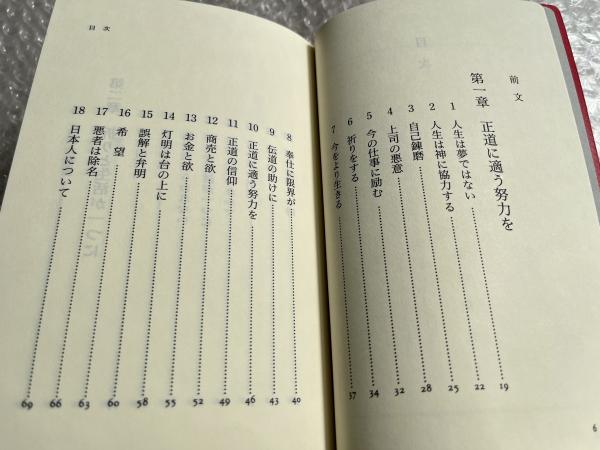 前文
第一章 正道に適う努力を
1 人生は夢ではない 19
2 人生は神に協力する 22
3 自己錬磨 25
4 上司の悪意 28
5 今の仕事に励む 32
6 祈りをする 34
7 今をより生きる 37
6
目次
8 奉仕に限界が 40
9 伝道の助けに 43
10 正道に適う努力を 46
11 正道の信仰 49
12 商売と欲 52
13 お金と欲 55
14 灯明は台の上に 58
15 誤解と弁明 60
16 希望 63
17 悪者は除名 66
18 日本人について 69